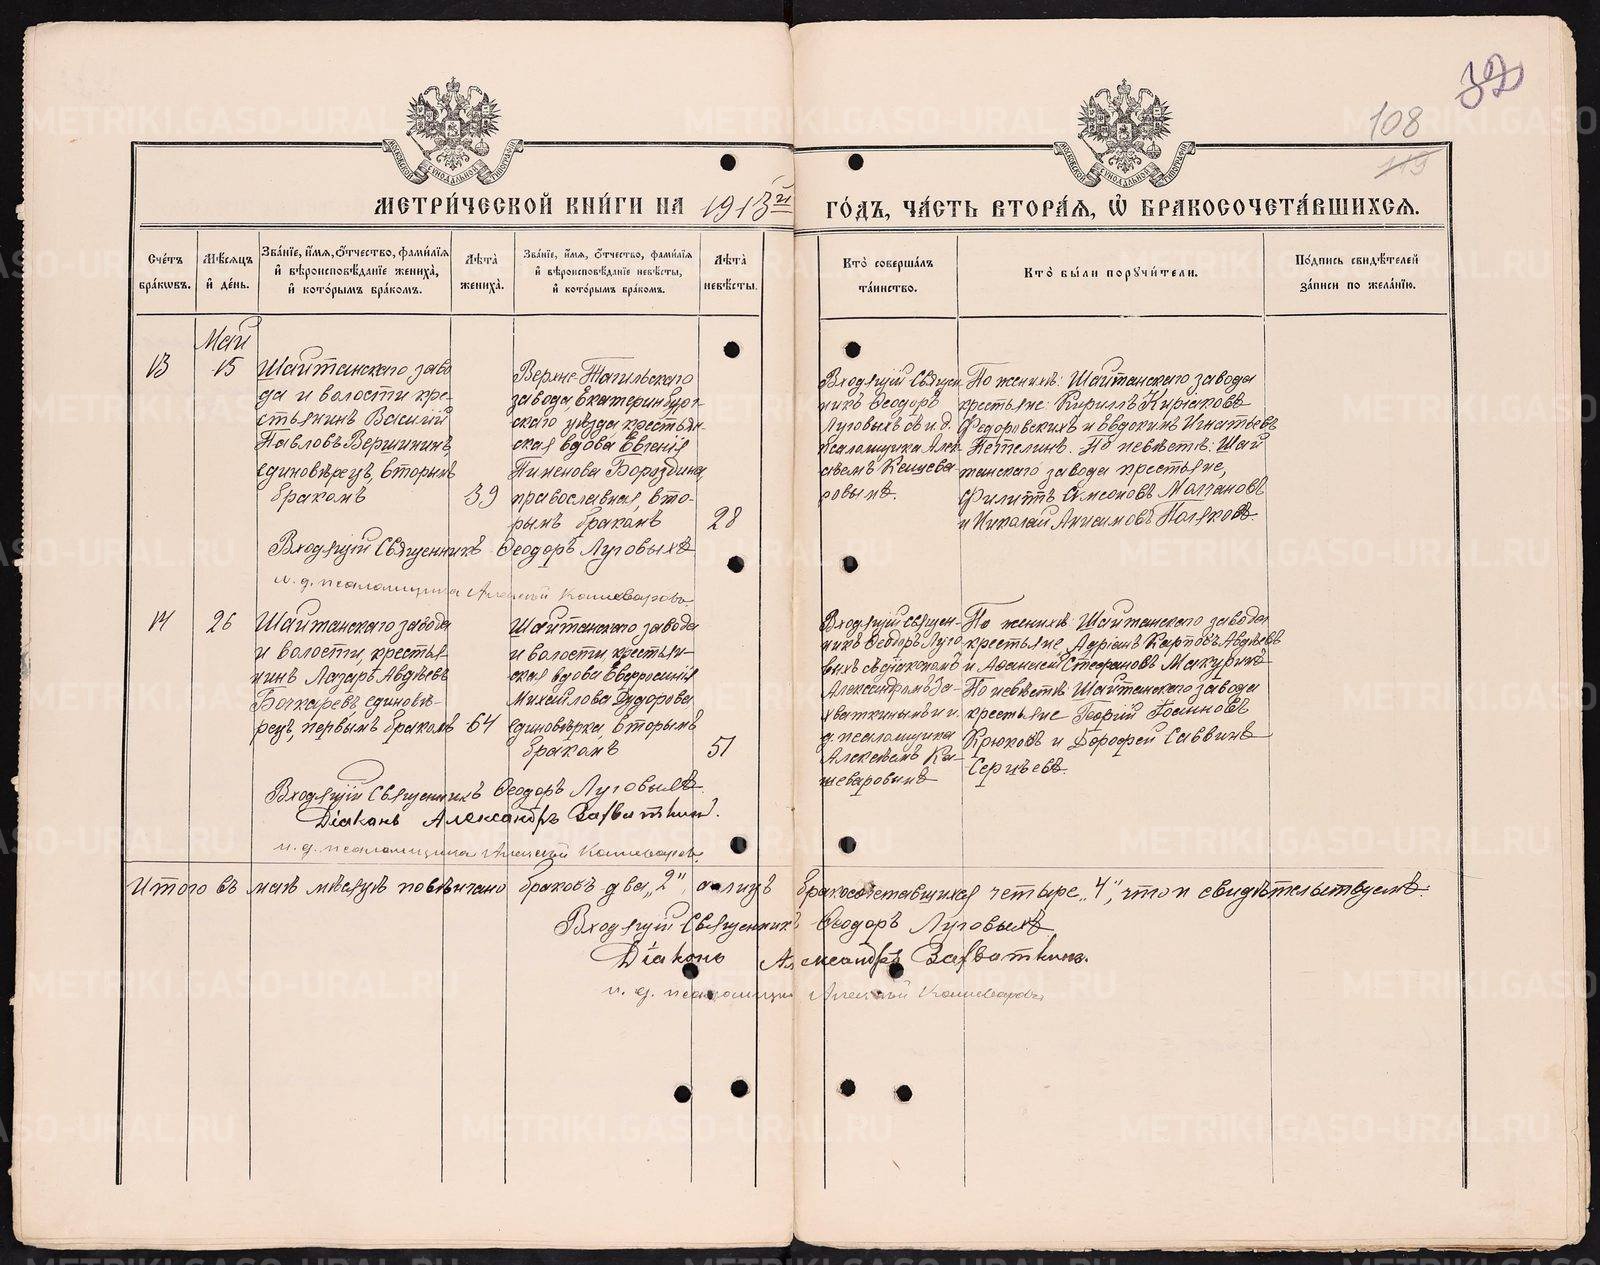 32
108
119
МОСКОВСКОЙ СИНОДАЛЬНОЙ ТИПОГРАФІИ
МОСКОВСКОЙ СИНОДАЛЬНОЙ ТИПОГРАФІИ
МЕТРИ́ЧЕСКОЙ КНИ́ГИ НА 1913й ГО́ДЪ, ЧА́СТЬ ВТОРА́Я, Ѽ БРАКОСОЧЕТА́ВШИХСЯ.
Сче́тъ
бра́кѡвъ.
Мѣ́сяцъ
и҆ де́нь.
Зва́нїе, и҆́мя, ѻ҆́тчество, фами́лїя
и҆ вѣроисповѣ́данїе жениха̀,
и҆ кото́рымъ бра́комъ.
Лѣ́та
жениха̀.
Зва́нїе, и҆́мя, ѻ҆́тчество, фами́лїя
и҆ вѣроисповѣ́данїе невѣ́сты,
и҆ кото́рымъ бра́комъ.
Лѣ́та
невѣ́сты.
Кто̀ соверша́лъ
та́инство.
Кто̀ бы́ли порꙋчи́тели.
По́дпись свидѣ́телей
за́писи по жела́нїю.
Май
13
15
Шайтанскаго заво
да и волости кре-
стьянинъ Василій
Павловъ Вершининъ,
единовѣрецъ, вторымъ
бракомъ
39
Верхне-Тагильскаго
завода, Екатеринбург-
скаго уѣзда крестьян-
ская вдова Евгенія
Пименова Бораздина,
православная, вто-
рымъ бракомъ
28
Входящій Священ-
никъ Ѳеодоръ
Луговыхъ съ и. д.
псаломщика Алек-
сѣемъ Кашева-
ровымъ.
По женихѣ: Шайтанскаго завода
крестьяне: Кириллъ Кирьяковъ
Федоровскихъ и Евдокимъ Игнатьевъ
Петелинъ. По невѣстѣ: Шай
танскаго завода крестьяне,
Филиппъ Симеоновъ Молчановъ
и Николай Анисимовъ Поляковъ.
Входящій Священникъ Ѳеодоръ Луговыхъ
и. д. псаломщика Алексѣй Кашеваровъ.
14
26
Шайтанскаго завода
и волости, крестья-
нинъ Лазарь Авдѣевъ
Бочкаревъ единовѣ-
рецъ, первымъ бракомъ
64
Шайтанскаго завода
и волости, крестьян-
ская вдова Евфросинія
Михайлова Дудорова
единовѣрка, вторымъ
бракомъ
51
Входящій священ-
никъ Ѳеодоръ Луго
выхъ съ діакономъ
Александромъ За-
хваткинымъ и и.
д. псаломщика
Алексѣемъ Ка-
шеваровымъ
По женихѣ: Шайтанскаго завода
крестьяне Адріанъ Карповъ Авдѣевъ
и Аѳанасій Стефановъ Макуринъ
По невѣстѣ: Шайтанскаго завода
крестьяне Георгій Іоанновъ
Крюковъ и Дорофей Саввинъ
Сергѣевъ.
Входящій Священникъ Ѳеодоръ Луговыхъ.
Діаконъ Александръ Захваткинъ.
и. д. псаломщика Алексѣй Кашеваровъ.
Итого въ маѣ мѣсяцѣ повѣнчано браковъ два „2“, а лицъ бракосочетавщихся четыре „4“, что и свидѣтельствуемъ.
Входящій Священникъ Ѳеодоръ Луговыхъ
Діаконъ Александръ Захваткинъ.
и. д. псаломщика Алексѣй Кашеваровъ